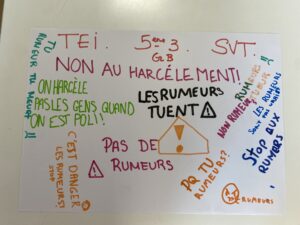 TEI. 5ème 3. SVT.
Gr B
NON AU HARCÈLEMENT!
TU
RUMEUR TU MEURT !!
ON HARCÈLE
PAS LES GENS QUAND
ON EST POLI!
LES RUMEURS
TUENT
RUMEURS
NON RUMEUR
LES RUMEURS
STOP AUX
RUMEURS
PAS DE
RUMEURS
C'EST DANGER
STOP
LES RUMEURS!
PQ TU
RUMEURS?
RUMEURS